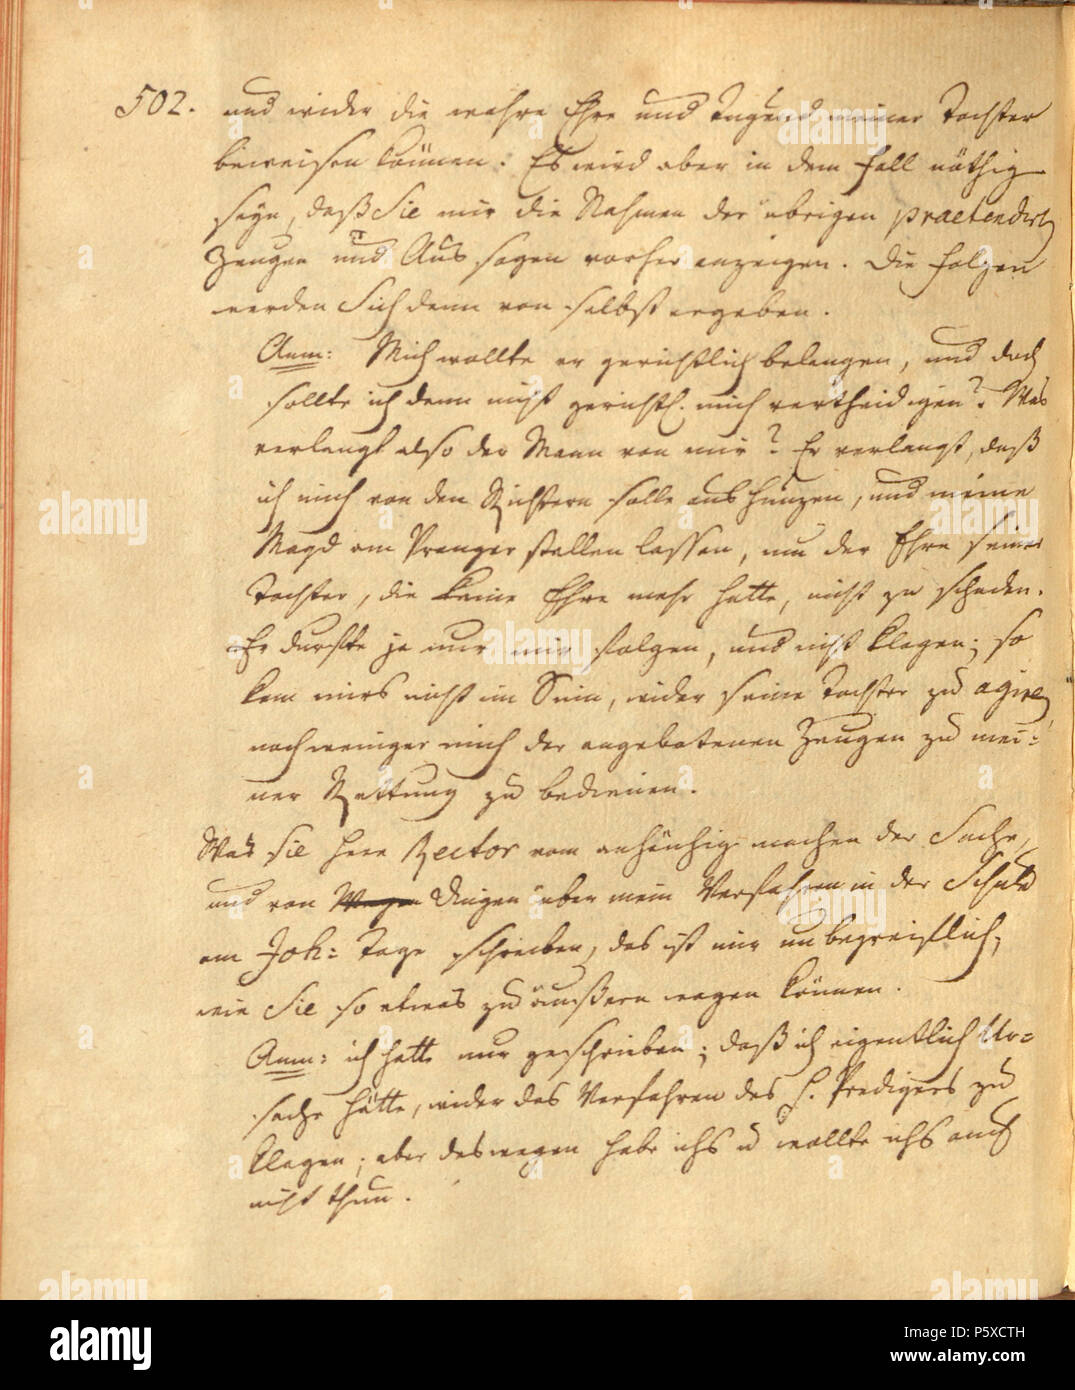 502. und wider die wahre Ehre und Tugend meiner Tochter
beweisen können. Es wird aber in dem Fall nöthig
seyn, daß Sie mir die Nahmen der übrigen praetendirten
Zeugen und Aussagen vorher anzeigen. Die Folgen
werden Sich denn von selbst ergeben.
Anm: Mich wollte er gerichtlich belangen, und doch
sollte ich denn nicht gerichtl. mich vertheidigen? Was
verlangt also der Mann von mir? Er verlangt, daß
ich mich von den Richtern solle aushunzen, und meine
Magd am Pranger stellen lassen, um der Ehre seiner
Tochter, die keine Ehre mehr hatte, nicht zu schaden.
Er durfte ja nur mir folgen, und nicht klagen; so
kam mirs nicht im Sinn, wider seine Tochter zu agiren
noch weniger mich der angebotenen Zeugen zu mei=
ner Rettung zu bedienen.
Was sie Herr Rector vom anhängig machen der Sache,
und von Dingen über mein Verfahren in der Schule
am Joh: Tage schreiben, das ist mir unbegreiflich,
wie Sie so etwas zu äußern wagen können.
Anm: ich hatte nur geschrieben; daß ich eigentlich Ur=
sache hätte, wider das Verfahren des H. Predigers zu
klagen; aber deswegen habe ichs u wollte ichs auch
nicht thun.
alamy
Image ID: P5XCTH
www.alamy.com